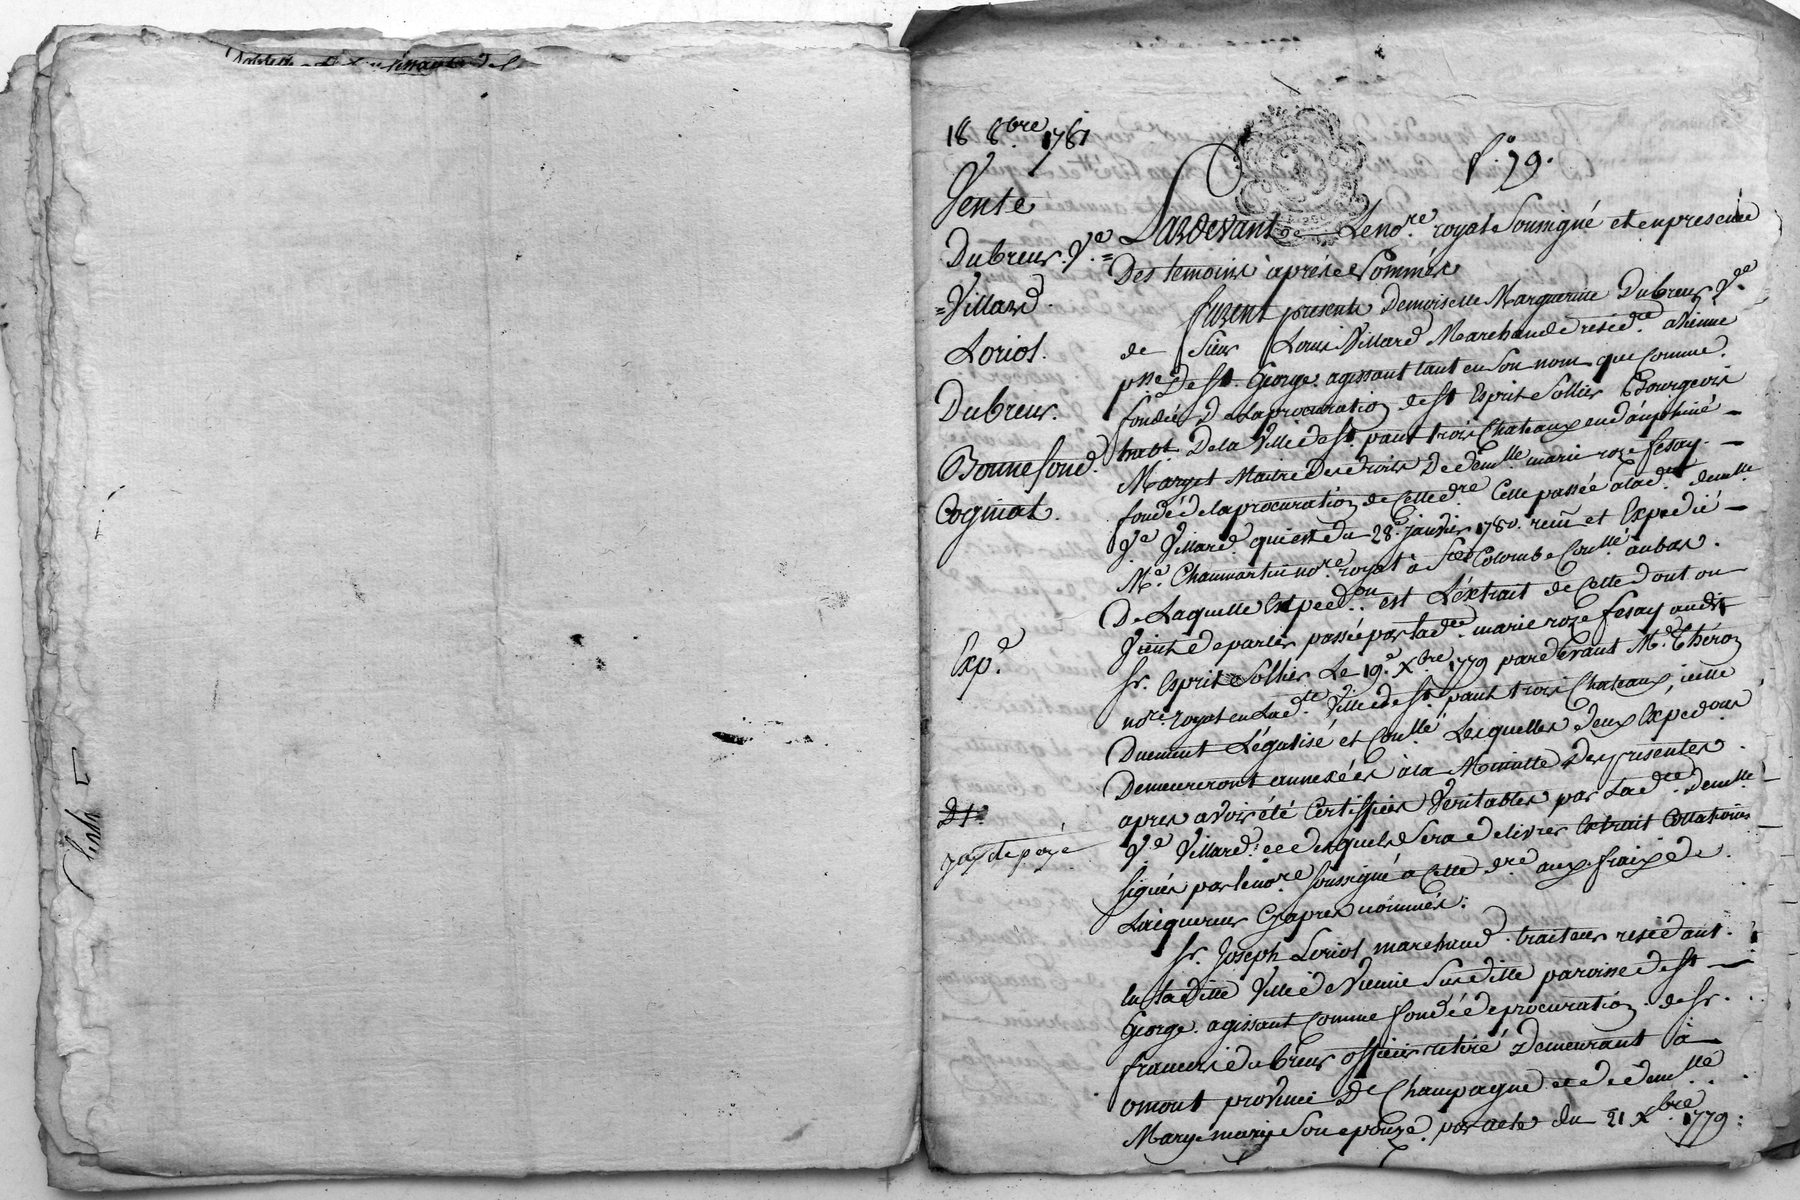 18 8.bre 1781
Vente
Dubreur. V.e =
= Villard.
Loriol.
Dubreur.
Bonnefond.
Cogniat.
Exp.é
f.o 79.
Pardevant Le no.re royal Soussigné et en presence
Des temoins après és Nommés
furent presents Demoiselle Marguerite Dubreur V.ve
de Sieur Louis Villard Marchande resid.te a Vienne
p.sse De St. George. agissant tant en Son nom que Comme
fondée De la procuration de Sr Esprit Sollier Bourgeois
habt. De la Ville de St. paul trois Chateaux en dauphiné
Mary et Maitre Des droits De dem.lle marie roze fesay.
fondé de la procuration de Cette d.re Celle passée a lad.te dem.lle
V.e Villard. qui est du 28.e janvier 1780. reçu et Expedié
M.e Chaumartin no.re royal à S.te Colombe Con.llé au bas.
De Laquelle Exped.on est L'éxtrait de Celle dont on
Vient de parler passée par lad.e marie roze fesay audit
Sr. Esprit Sollier Le 19.e X.bre 1779 pardevant M.e Théron
no.re royal en Lad.te Ville de St. paul trois Chateaux, icelle
Duement Légalisé et Con.llé Lesquelles deux Exped.ons
Demeureront annexées à la Minutte Des presentes.
apres avoir été Certiffiées Veritables par Lad.e Dem.lle
V.e Villard. et desquels Sera delivrer Extrait
Signés par le no.re Soussigné à Cette d.re aux fraix de
L'acquereur Cyapres nommés.
Sr. Joseph Loriol marchand traiteur residant.
en ladite Ville de Vienne Susditte paroisse de St
George. agissant Comme fondé de procuration de Sr.
francois dubreur officier retiré Demeurant à
omont province De Champagne et de dem.lle
Mary Son epouze. par acte du 21 X.bre 1779: